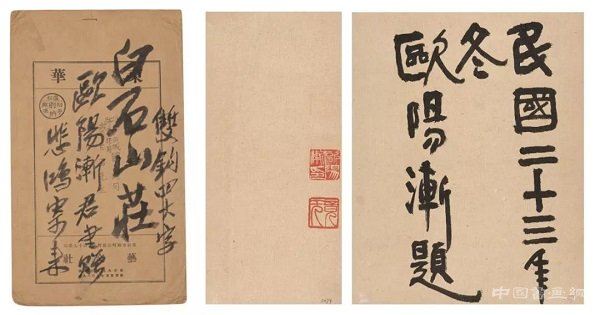 雙鈎四大字
白石山莊
歐陽漸君書贈
悲鴻寄來
華
藝社
民國二十三年
冬
歐陽漸題